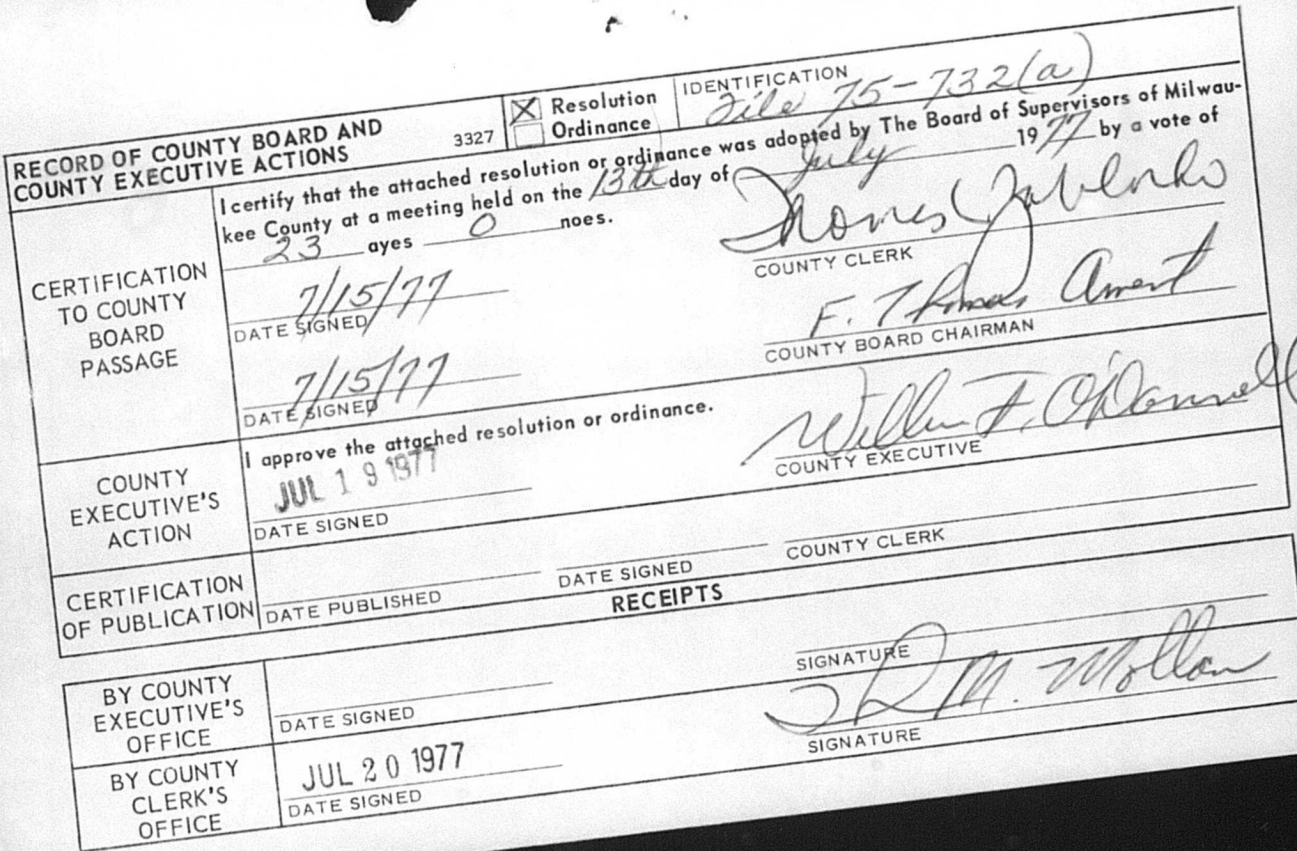 RECORD OF COUNTY BOARD AND
COUNTY EXECUTIVE ACTIONS
3327
X Resolution
Ordinance
IDENTIFICATION
File 75-732(a)
CERTIFICATION
TO COUNTY
BOARD
PASSAGE
I certify that the attached resolution or ordinance was adopted by The Board of Supervisors of Milwau-
kee County at a meeting held on the 13th day of July 1977 by a vote of
23 ayes 0 noes.
7/15/77
DATE SIGNED
Thomas
COUNTY CLERK
7/15/77
DATE SIGNED
F. Thomas Ament
COUNTY BOARD CHAIRMAN
COUNTY
EXECUTIVE'S
ACTION
I approve the attached resolution or ordinance.
JUL 19 1977
DATE SIGNED
William F. O'Donnell
COUNTY EXECUTIVE
CERTIFICATION
OF PUBLICATION
DATE PUBLISHED
DATE SIGNED
COUNTY CLERK
RECEIPTS
BY COUNTY
EXECUTIVE'S
OFFICE
DATE SIGNED
SIGNATURE
BY COUNTY
CLERK'S
OFFICE
JUL 20 1977
DATE SIGNED
M.
SIGNATURE